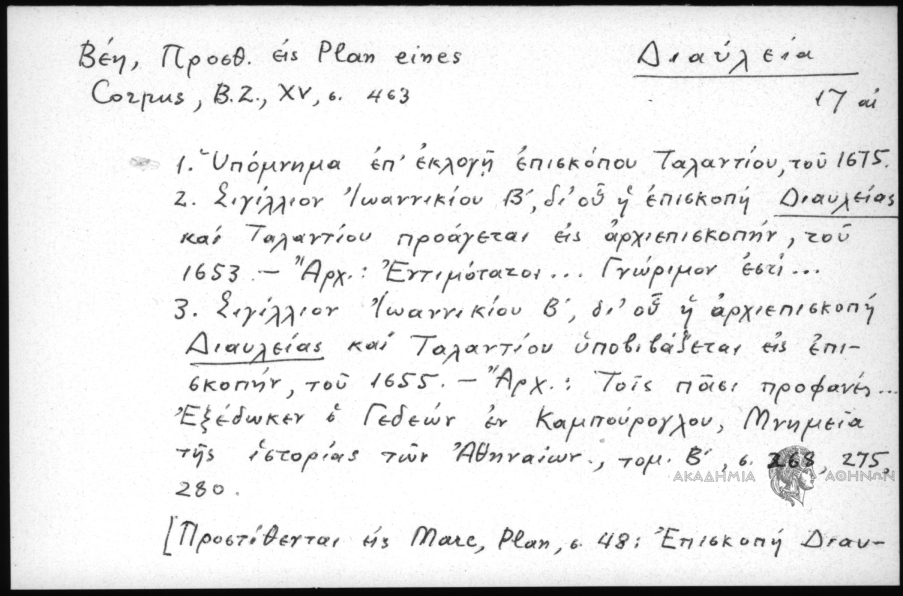 Βέη, Προσθ. εἰς Plan eines
Διαύλεια
Corpus, B.Z., XV, σ. 463
17 αἰ
1. Ὑπόμνημα ἐπ' ἐκλογῇ ἐπισκόπου Ταλαντίου, τοῦ 1675.
2. Σιγίλλιον Ἰωαννικίου Β', δι' οὗ ἡ ἐπισκοπή Διαυλείας
καί Ταλαντίου προάγεται εἰς ἀρχιεπισκοπήν, τοῦ
1653. — Ἀρχ.: Ἐντιμότατοι... Γνώριμον ἐστί...
3. Σιγίλλιον Ἰωαννικίου Β', δι' οὗ ἡ ἀρχιεπισκοπή
Διαυλείας καί Ταλαντίου ὑποβιβάζεται εἰς ἐπι-
σκοπήν, τοῦ 1655. — Ἀρχ.: Τοῖς πᾶσι προφανές...
Ἐξέδωκεν ὁ Γεδεών ἐν Καμπούρογλου, Μνημεῖα
τῆς ἱστορίας τῶν Ἀθηναίων., τομ. Β', σ. 268, 275,
ΑΚΑΔΗΜΙΑ ΑΘΗΝΩΝ
280.
[Προστίθενται εἰς Marc, Plan, σ. 48: Ἐπισκοπή Διαυ-